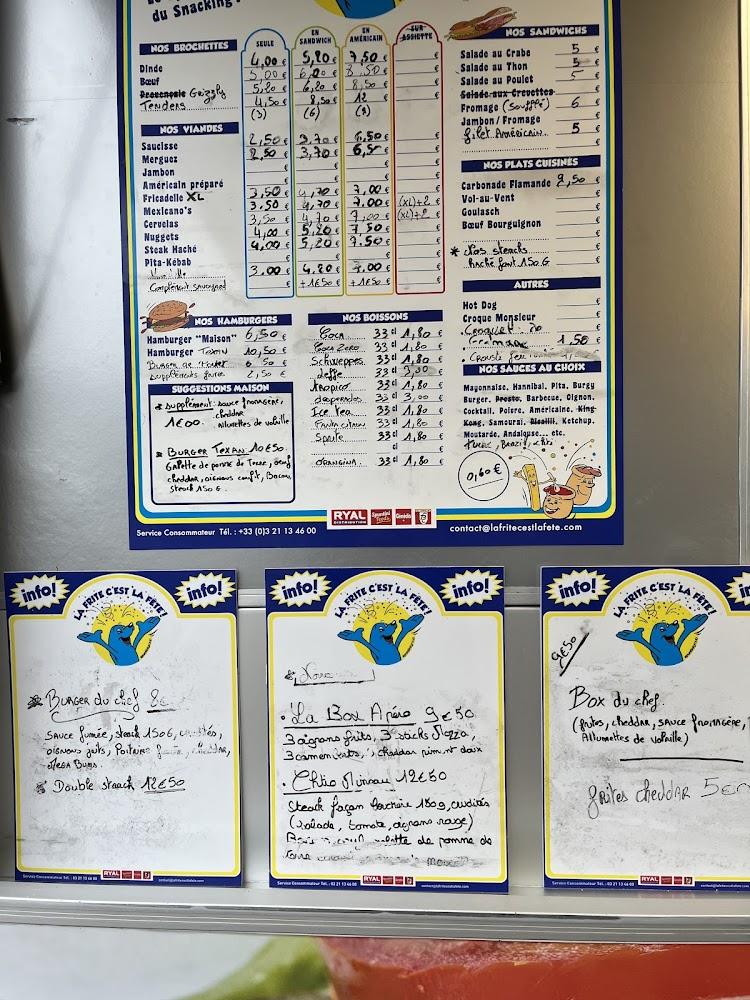 du Snacking !
NOS BROCHETTES
SEULE
EN SANDWICH
EN AMÉRICAIN
SUR ASSIETTE
Dinde 4,00 € 5,20 € 7,50 € €
Bœuf 5,00 € 6,00 € 8,50 € €
Provençale Grizzly 5,20 € 6,20 € 8,50 € €
Tenders 4,50 € 8,50 € 12 € €
(3) (6) (9)
NOS VIANDES
Saucisse 2,50 € 3,70 € 6,50 € €
Merguez 2,50 € 3,70 € 6,50 € €
Jambon € € € €
Américain préparé € € € €
Fricadelle XL 3,50 € 4,70 € 7,00 € €
Mexicano's 3,50 € 4,70 € 7,00 € (XL)+2 €
Cervelas 3,50 € 4,70 € 7,00 € (XL)+2 €
Nuggets 4,00 € 5,20 € 7,50 € €
Steak Haché 4,00 € 5,20 € 7,50 € €
Pita-Kébab € € € €
3,00 € 4,20 € 7,00 € €
Complément € +1€50 € +1€50 € €
NOS HAMBURGERS
Hamburger "Maison" 6,50 €
Hamburger Texan 10,50 €
Burger de 6 50 €
Suppléments 2,50 €
SUGGESTIONS MAISON
* Supplément : sauce fromagère,
1€00. cheddar
Allumettes de volaille
* BURGER TEXAN 10€50.
Galette de pomme de Terre, oeuf
cheddar, oignons confit, Bacon,
steack 150 G.
NOS BOISSONS
Coca 33 cl 1,80 €
Coca Zero 33 cl 1,80 €
Schweppes 33 cl 1,80 €
Leffe 33 cl 3,00 €
Tropico 33 cl 1,80 €
desperados 33 cl 3,00 €
Ice Tea 33 cl 1,80 €
Fanta citron 33 cl 1,80 €
Sprite 33 cl 1,80 €
cl €
ORANGINA 33 cl 1,80 €
NOS SANDWICHS
Salade au Crabe 5 €
Salade au Thon 5 €
Salade au Poulet 5 €
Salade aux Crevettes €
Fromage (Soufflé) 6 €
Jambon/Fromage €
filet Américain. 5 €
NOS PLATS CUISINÉS
Carbonade Flamande 9,50 €
Vol-au-Vent €
Goulasch €
Bœuf Bourguignon €
* Nos steacks
haché font 150 G €
AUTRES
Hot Dog €
Croque Monsieur €
1,50 €
NOS SAUCES AU CHOIX
Mayonnaise, Hannibal, Pita, Burgy
Burger, Presto, Barbecue, Oignon,
Cocktail, Poivre, Américaine, King
Kong, Samouraï, Picalilli, Ketchup,
Moutarde, Andalouse... etc.
Brazil,
0,60 €
RYAL
DISTRIBUTION
Service Consommateur Tél. : +33 (0)3 21 13 46 00
contact@lafritecestlafete.com
info! info!
LA FRITE C'EST LA FÊTE!
* BURGER du chef 8€
SAUCE fumée, steack 150G, crudités,
oignons frits, Poitrine fumée, cheddar,
MEGA Buns.
* Double steack 12€50
RYAL
info! info!
LA FRITE C'EST LA FÊTE!
. La Box Apéro 9€50
3 oignons frits, 3 sticks Mozza,
3 camemberts, 3 cheddar piment doux
. Chtio Mineau 12€60
Steack façon bouchère 180g, crudités
(salade, tomate, oignons rouge)
galette de pomme de
terre
RYAL
info!
LA FRITE C'EST LA FÊTE!
9€50
Box du chef.
(frites, cheddar, sauce fromagère,
Allumettes de volaille)
frites cheddar 5€
RYAL